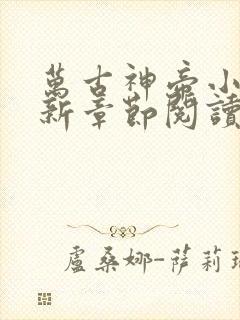 萬古神帝小
新章節閱讀
盧桑娜-萨莉